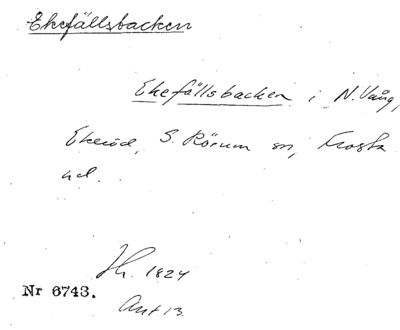 Ekefällsbacken
Ekefällsbacken i N. Vång,
Ekeröd, S. Rörum sn, Frosta
hd.
Jh. 1824
Nr 6743.
Ant 13.